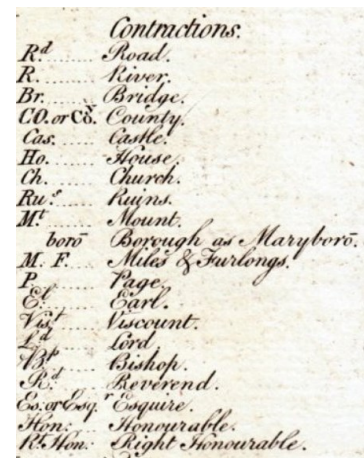 Contractions.
R.d ........ Road.
R. ........ River.
Br. ........ Bridge.
CO. or Cō. County.
Cas. ...... Castle.
Ho. ........ House.
Ch. ........ Church.
Ru.s ........ Ruins.
M.t ........ Mount.
borō Borough as Maryborō.
M. F. .... Miles & Furlongs.
P. ........ Page.
E:l ........ Earl.
Vis.t ...... Viscount.
L.d ........ Lord.
B.p ........ Bishop.
R:d ........ Reverend.
Es: or Esq.r Esquire.
Hon: ...... Honourable.
R.t Hon: Right Honourable.